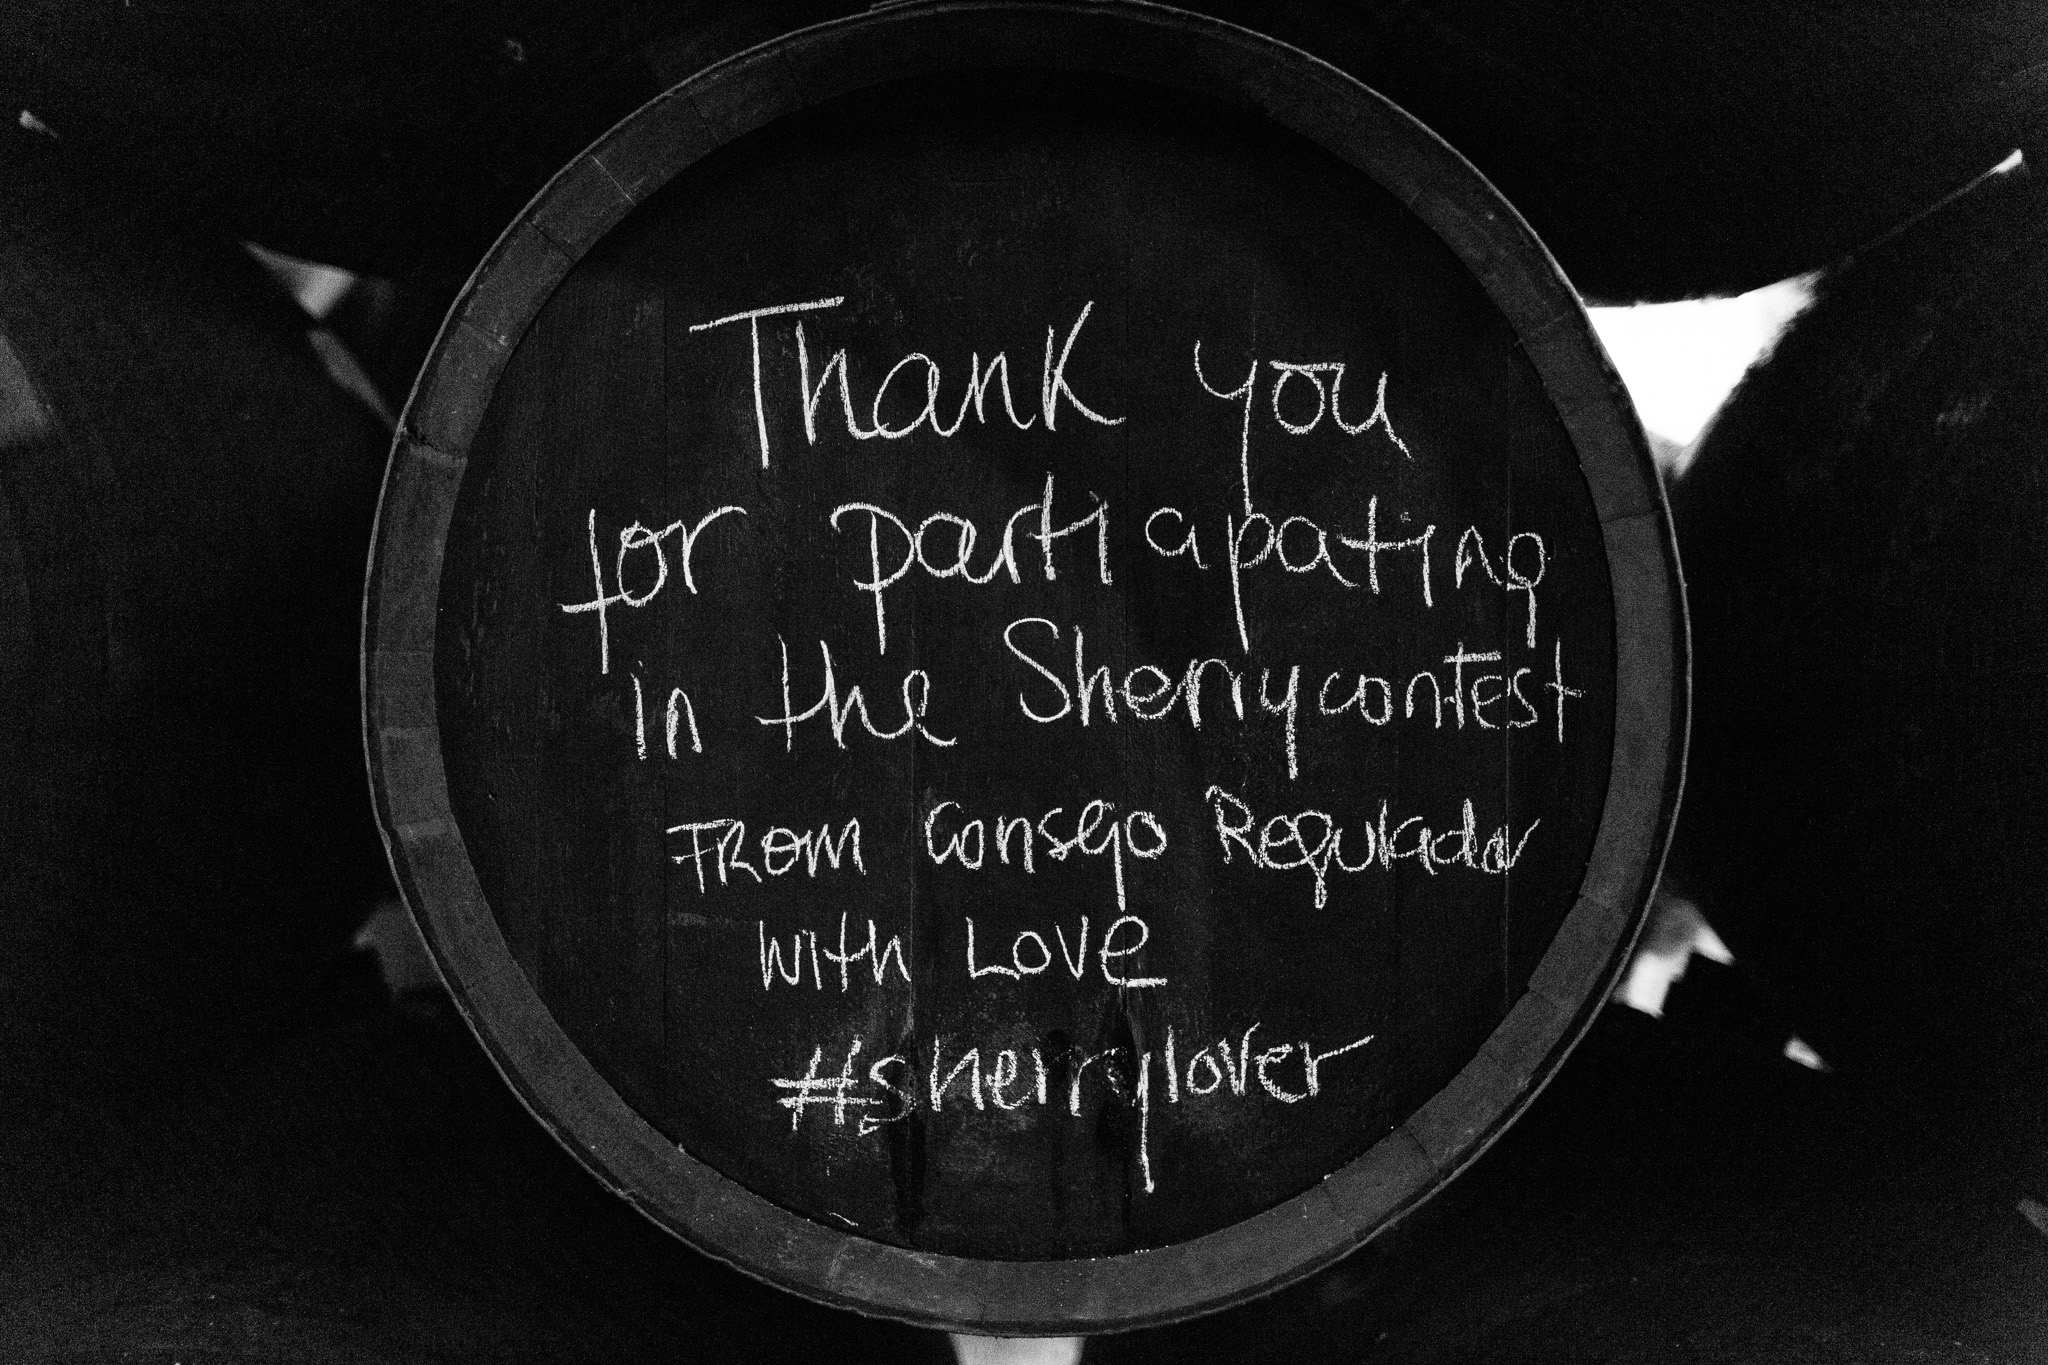 Thank you
for participating
in the Sherry contest
FROM Consejo Regulador
with LOVE
#sherrylover